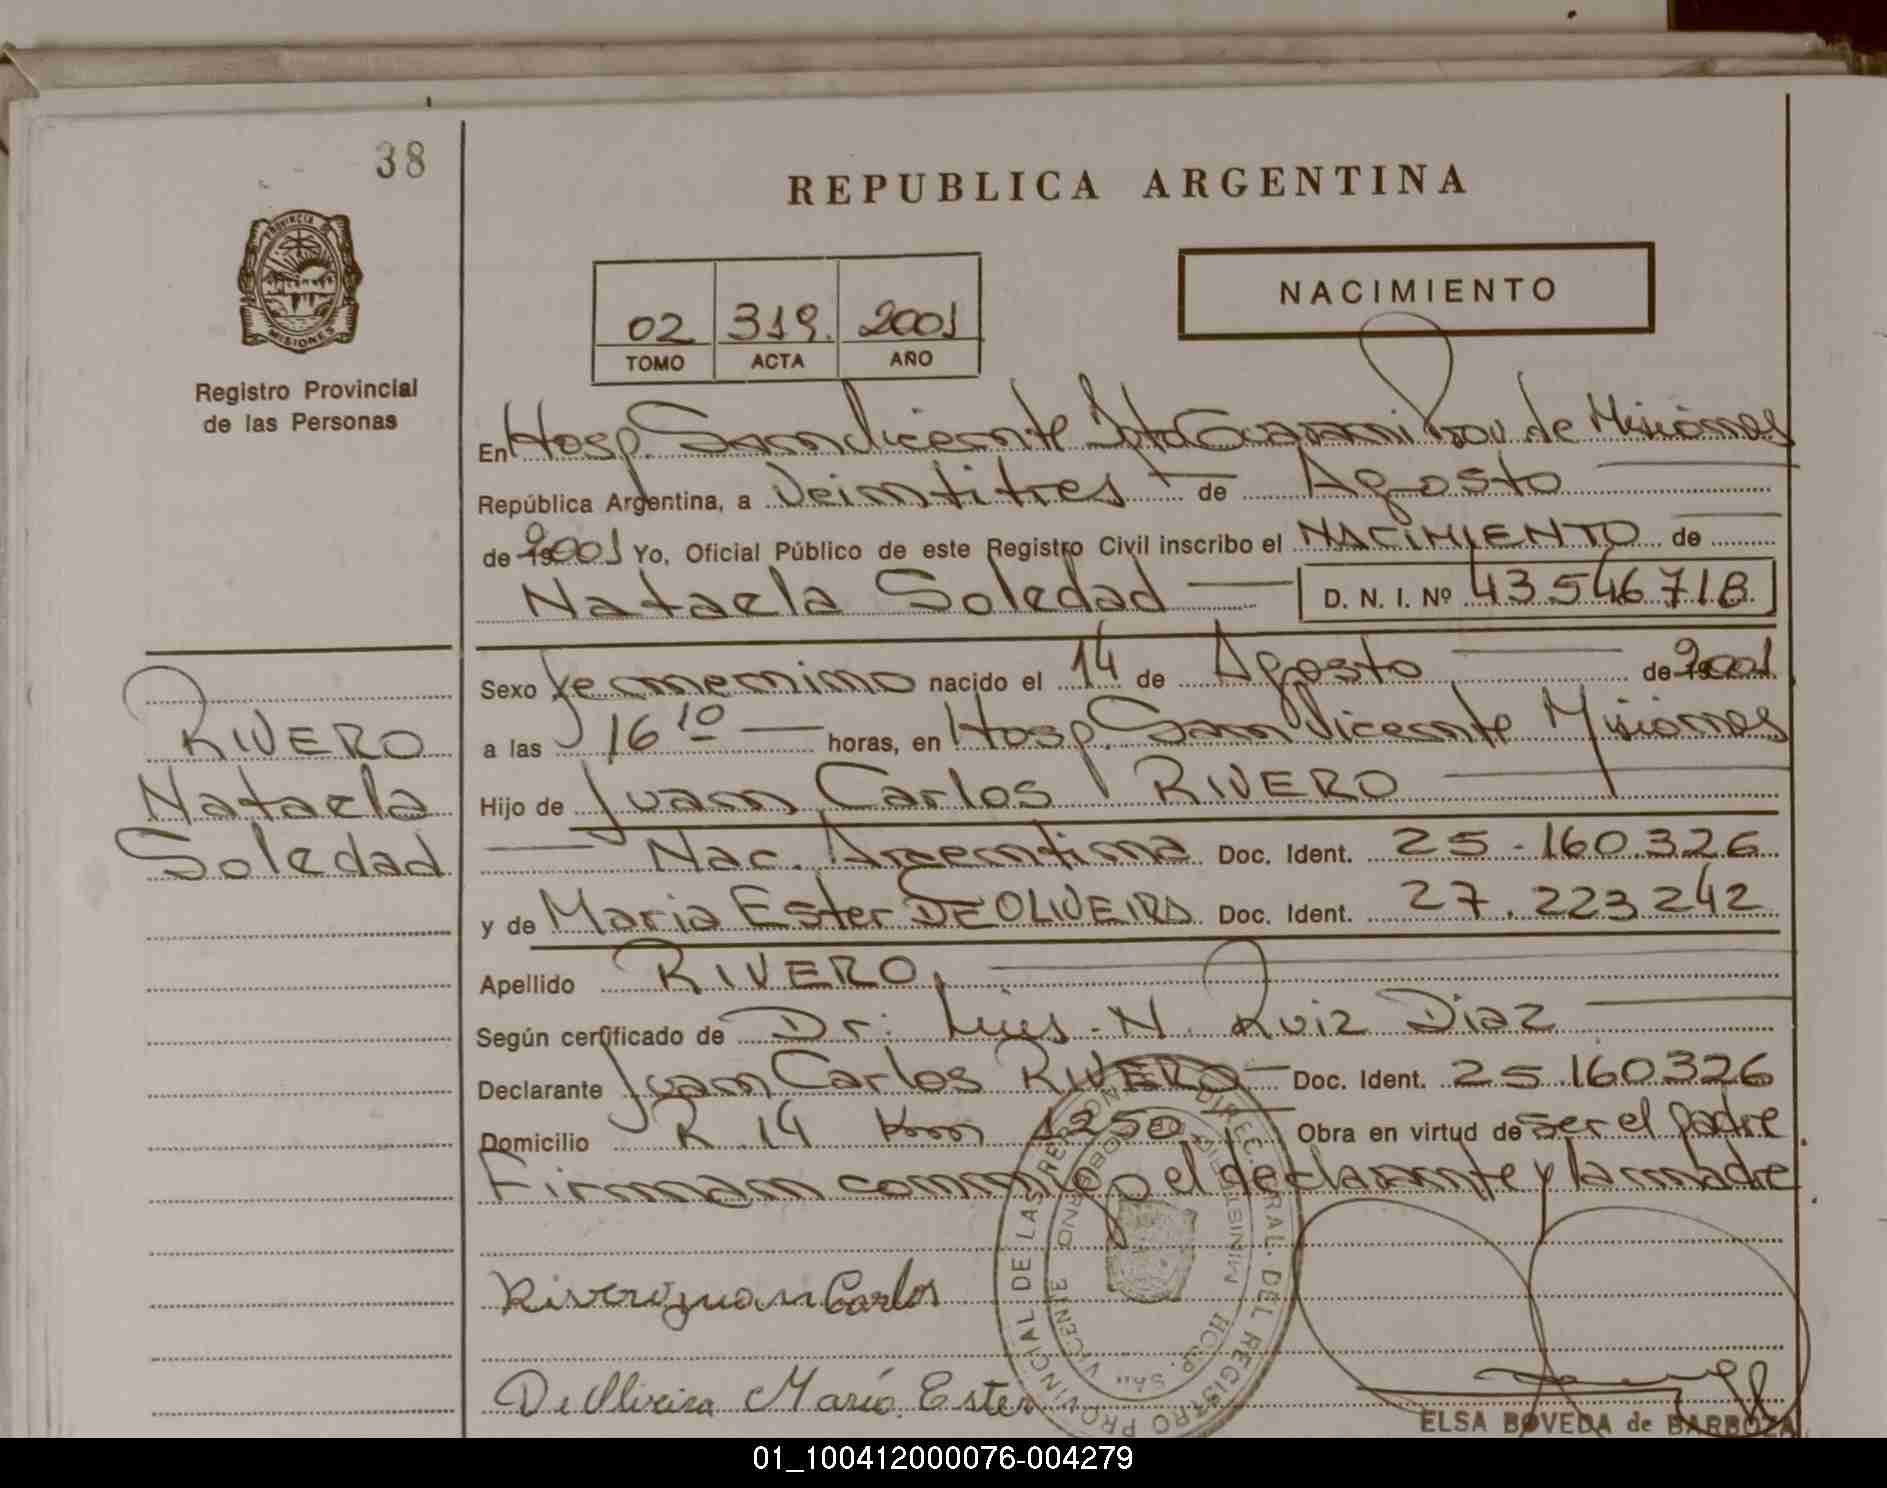 38
PROVINCIA
MISIONES
Registro Provincial
de las Personas
REPUBLICA ARGENTINA
02 319. 2001
TOMO ACTA AÑO
NACIMIENTO
En Hosp. San Vicente Dpto Guarani Prov. de Misiones
República Argentina, a Veintitres de Agosto
de 2001 Yo, Oficial Público de este Registro Civil inscribo el NACIMIENTO de
Nataela Soledad D. N. I. Nº 43546718
Sexo femenino nacido el 14 de Agosto de 2001
a las 16 10 horas, en Hosp. San Vicente Misiones
Hijo de Juan Carlos RIVERO
Nac. Argentina Doc. Ident. 25.160.326
y de Maria Ester DE OLIVEIRA Doc. Ident. 27.223242
Apellido RIVERO
Según certificado de Dr. Luis N. Ruiz Diaz
Declarante Juan Carlos RIVERO Doc. Ident. 25.160326
Domicilio R 14 Km 1250 Obra en virtud de ser el padre.
Firman conmigo el declarante y la madre.
RIVERO
Nataela
Soledad
Rivero juan Carlos
De Oliveira María Ester
ELSA BOVEDA de BARBOZA
01_100412000076-004279